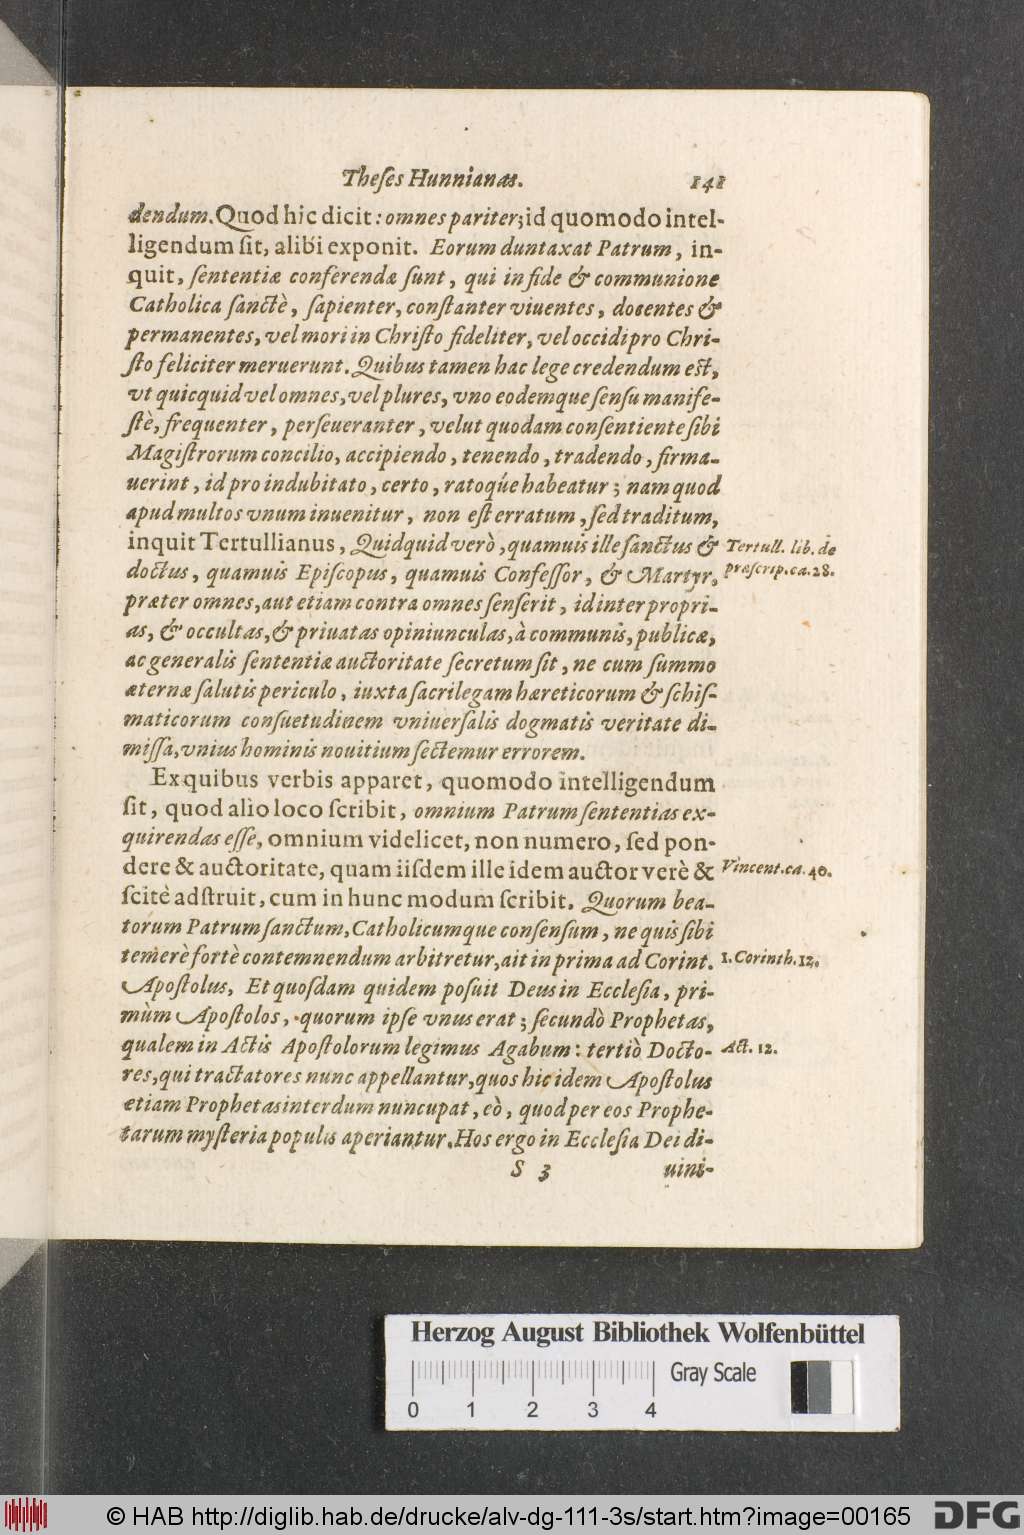 Theſes Hunnianas. 141
dendum. Quod hic dicit: omnes pariter; id quomodo intel-
ligendum ſit, alibi exponit. Eorum duntaxat Patrum, in-
quit, ſententiæ conferendæ ſunt, qui in fide & communione
Catholica ſanctè, ſapienter, conſtanter viuentes, docentes &
permanentes, vel mori in Chriſto fideliter, vel occidi pro Chri-
ſto feliciter meruerunt. Quibus tamen hac lege credendum eſt,
vt quicquid vel omnes, vel plures, vno eodemque ſenſu manife-
ſtè, frequenter, perſeueranter, velut quodam conſentiente ſibi
Magiſtrorum concilio, accipiendo, tenendo, tradendo, firma-
uerint, id pro indubitato, certo, ratoq́ue habeatur; nam quod
apud multos vnum inuenitur, non eſt erratum, ſed traditum,
inquit Tertullianus, Quidquid verò, quamuis ille ſanctus &
Tertull. lib. de
doctus, quamuis Epiſcopus, quamuis Confeſſor, & Martyr,
præſcrip. ca. 28.
præter omnes, aut etiam contra omnes ſenſerit, id inter propri-
as, & occultas, & priuatas opiniunculas, à communis, publicæ,
ac generalis ſententiæ auctoritate ſecretum ſit, ne cum ſummo
æternæ ſalutis periculo, iuxta ſacrilegam hæreticorum & ſchiſ-
maticorum conſuetudinem vniuerſalis dogmatis veritate di-
miſſa, vnius hominis nouitium ſectemur errorem.
Ex quibus verbis apparet, quomodo intelligendum
ſit, quod alio loco ſcribit, omnium Patrum ſententias ex-
quirendas eſſe, omnium videlicet, non numero, ſed pon-
dere & auctoritate, quam iiſdem ille idem auctor verè &
Vincent. ca. 40.
ſcitè adſtruit, cum in hunc modum ſcribit. Quorum bea-
torum Patrum ſanctum, Catholicumque conſenſum, ne quis ſibi
temerè fortè contemnendum arbitretur, ait in prima ad Corint.
1. Corinth. 12.
Apoſtolus, Et quoſdam quidem poſuit Deus in Eccleſia, pri-
mùm Apoſtolos, quorum ipſe vnus erat; ſecundò Prophetas,
qualem in Actis Apoſtolorum legimus Agabum: tertiò Docto-
Act. 12.
res, qui tractatores nunc appellantur, quos hic idem Apoſtolus
etiam Prophetas interdum nuncupat, eò, quod per eos Prophe-
tarum myſteria populis aperiantur. Hos ergo in Eccleſia Dei di-
S 3 uini-
Herzog August Bibliothek Wolfenbüttel
Gray Scale
0 1 2 3 4
© HAB http://diglib.hab.de/drucke/alv-dg-111-3s/start.htm?image=00165 DFG